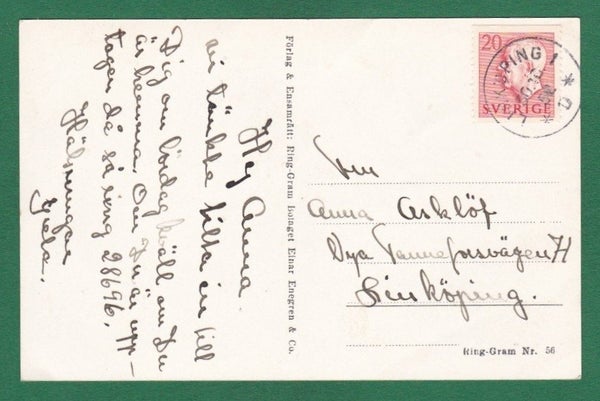 Hej Anna.
vi tänkte titta in till
Dig om lördag kväll om Du
är hemma. Om Du är upp-
tagen då så ring 28696.
Hälsningar
Förlag & Ensamrätt: Ring-Gram bolaget Einar Enegren & Co.
20
SVERIGE
KÖPING 1
Fru
Anna Asklöf
Nya Tanneforsvägen 71
Linköping.
Ring-Gram Nr. 56